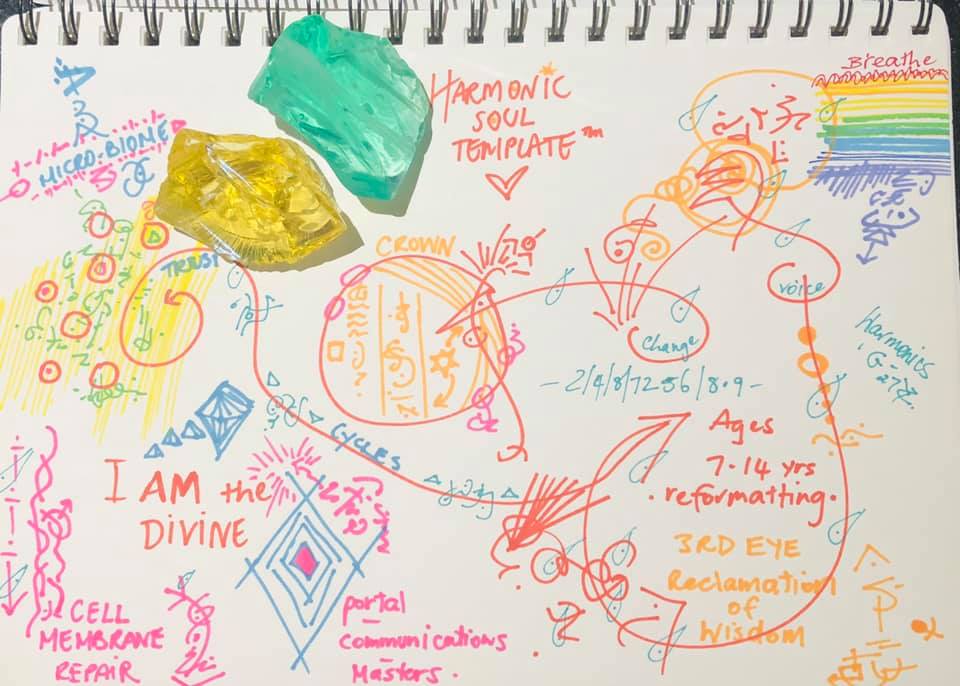 Breathe
HARMONIC
SOUL
TEMPLATE™
MICRO-BIOME
TRUST
CROWN
voice
Change
Harmonics
- 2/4/8/12-56/8.9 -
CYCLES
Ages
7-14 yrs
. reformatting.
I AM the
DIVINE
3RD EYE
Reclamation
of
Wisdom
CELL
MEMBRANE
REPAIR
portal
communications
Masters.